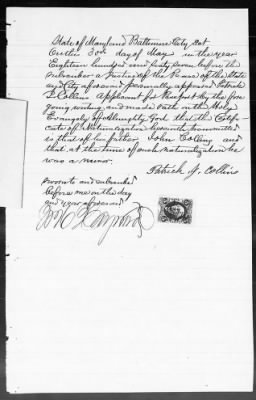 State of Maryland Baltimore City Sct.
On this 30th day of May in the year
Eighteen hundred and sixty seven before the
subscriber a Justice of the Peace of the State
and City aforesaid personally appeared Patrick
J. Collins Applicant for Passport by the fore
going writing, and made oath on the Holy
Evangely of Almighty God that the Certifi-
cate of Naturalization herewith transmitted
is that of his father John Collins and
that at the time of such naturalization he
was a minor.
Patrick J. Collins
sworn to and subscribed
before me on the day
and year aforesaid